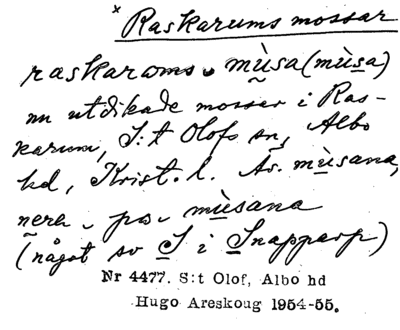 × Raskarums mossar
raskaroms ᴗ mùsa (mùsa)
nu utdikade mossar i Ras-
karum, S:t Olofs sn, Albo
hd, Krist. l. Äv. mùsana,
nere ᴗ på ᴗ mùsana
(något sv S i Snapparp)
Nr 4477. S:t Olof, Albo hd
Hugo Areskoug 1954-55.